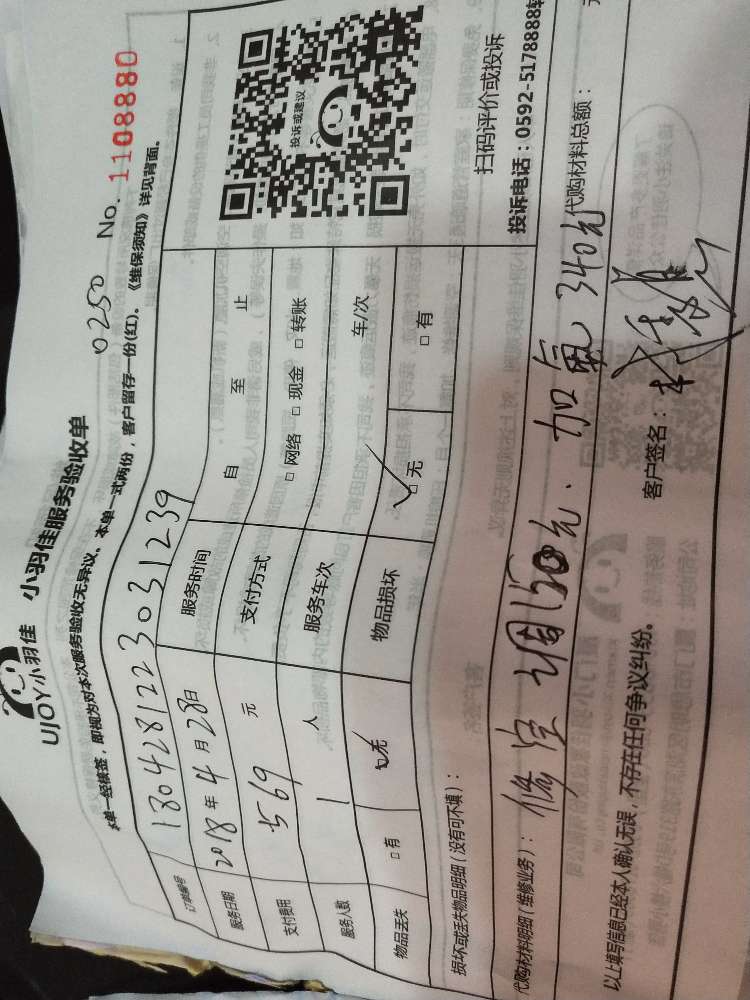 UJOY小羽佳 小羽佳服务验收单 0250 No. 1108880
本单一经核签，即视为对本次服务验收无异议。本单一式两份，客户留存一份(红)。《维保须知》详见背面。
订单编号 1804281223031239
服务日期 2018年4月28日 服务时间 自 至 止
支付费用 569 元 支付方式 □网络 □现金 □转账
服务人数 1 人 服务车次 车/次
物品丢失 □有 □无 物品损坏 □无 □有
投诉或建议
扫码评价或投诉
投诉电话：0592-5178888转
损坏或丢失物品明细（没有可不填）：
代购材料明细（维修业务）：修空调150元．加氟340元 代购材料总额： 元
以上填写信息已经本人确认无误，不存在任何争议纠纷。 客户签名：